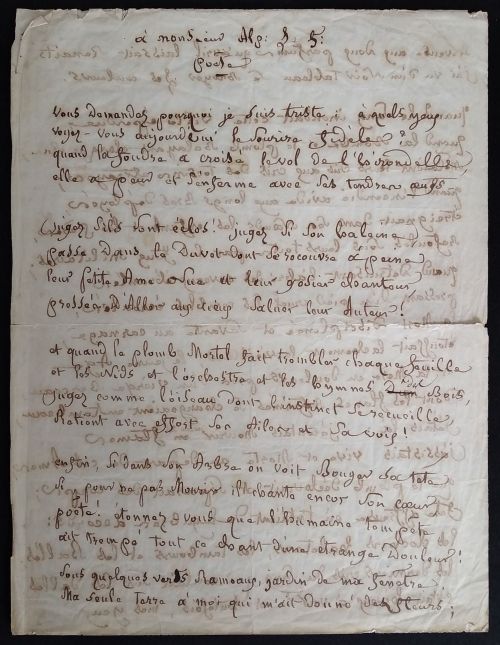 à monsieur Alp. L.
Poète
Vous demandez pourquoi je suis triste : à quels yeux
voyez-vous aujourd'hui le sourire fidèle ?
quand la foudre a croisé le vol de l'hirondelle,
elle a peur et s'enferme avec ses tendres œufs
Jugez s'ils sont éclos ! jugez si son haleine
passe dans le duvet dont se recouvre à peine
leur petite Ame Nue et leur gosier chantant
pressé d'Aller aux cieux saluer leur Auteur !
et quand le plomb Mortel fait trembler chaque feuille
et les Nids et l'orchestre et les hymnes Bois,
Jugez comme l'oiseau dont l'instinct se recueille,
Retient avec effort Son Ailes et Sa voix !
enfin, si dans son Arbre on voit Bouger Sa tête
Si pour ne pas Mourir il chante encor son cœur
poète ! étonnez vous que l'humaine tempête
ait trempé tout ce chant d'une étrange Douleur !
Sous quelques verts Rameaux, jardin de ma fenêtre
Ma seule terre à moi qui m'ait donné des fleurs ;